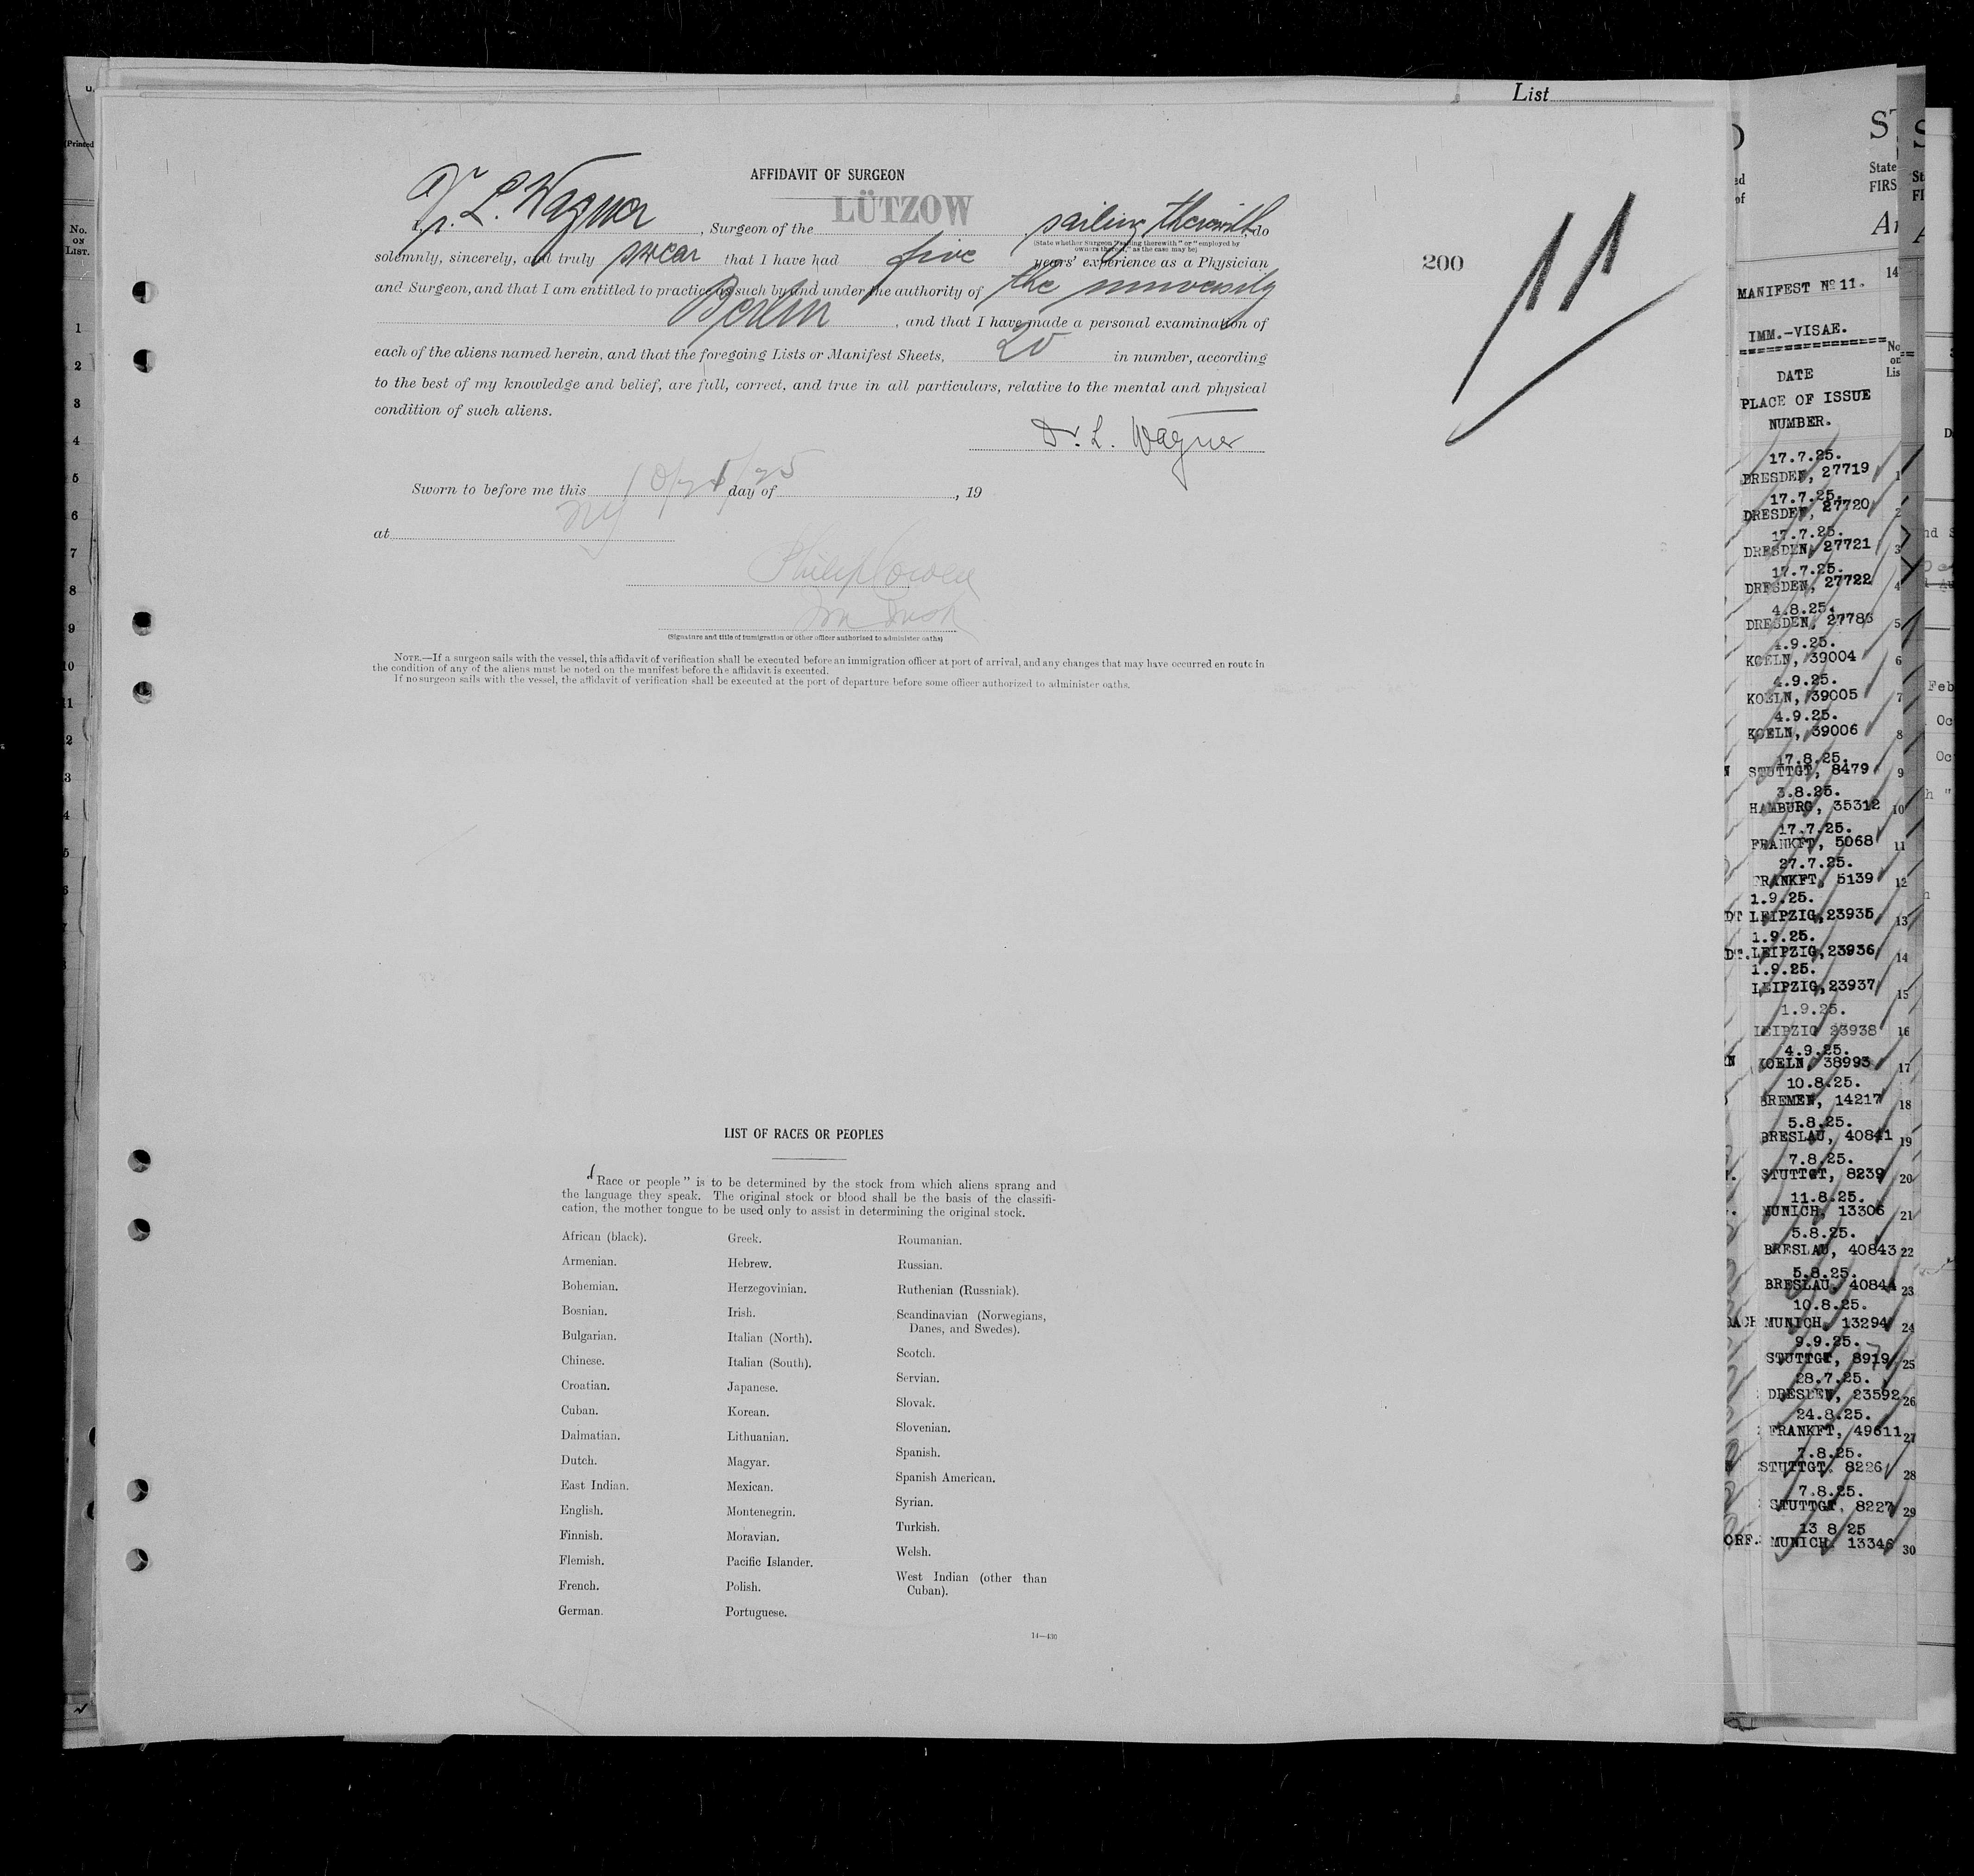 List
AFFIDAVIT OF SURGEON
I, Dr. L. Wagner, Surgeon of the LÜTZOW sailing therewith, do
(State whether Surgeon "sailing therewith" or "employed by
owners thereof," as the case may be)
solemnly, sincerely, and truly swear that I have had five years' experience as a Physician
and Surgeon, and that I am entitled to practice as such by and under the authority of the university
Berlin, and that I have made a personal examination of
each of the aliens named herein, and that the foregoing Lists or Manifest Sheets, 20 in number, according
to the best of my knowledge and belief, are full, correct, and true in all particulars, relative to the mental and physical
condition of such aliens.
Dr. L. Wagner
Sworn to before me this day of , 19
at NY
Philip Cowen
(Signature and title of immigration or other officer authorized to administer oaths)
NOTE.—If a surgeon sails with the vessel, this affidavit of verification shall be executed before an immigration officer at port of arrival, and any changes that may have occurred en route in
the condition of any of the aliens must be noted on the manifest before the affidavit is executed.
If no surgeon sails with the vessel, the affidavit of verification shall be executed at the port of departure before some officer authorized to administer oaths.
200
11
LIST OF RACES OR PEOPLES
"Race or people" is to be determined by the stock from which aliens sprang and
the language they speak. The original stock or blood shall be the basis of the classifi-
cation, the mother tongue to be used only to assist in determining the original stock.
African (black).
Armenian.
Bohemian.
Bosnian.
Bulgarian.
Chinese.
Croatian.
Cuban.
Dalmatian.
Dutch.
East Indian.
English.
Finnish.
Flemish.
French.
German.
Greek.
Hebrew.
Herzegovinian.
Irish.
Italian (North).
Italian (South).
Japanese.
Korean.
Lithuanian.
Magyar.
Mexican.
Montenegrin.
Moravian.
Pacific Islander.
Polish.
Portuguese.
Roumanian.
Russian.
Ruthenian (Russniak).
Scandinavian (Norwegians,
Danes, and Swedes).
Scotch.
Servian.
Slovak.
Slovenian.
Spanish.
Spanish American.
Syrian.
Turkish.
Welsh.
West Indian (other than
Cuban).
14—430
(Printed
No.
ON
LIST.
1
2
3
4
5
6
7
8
9
10
11
State
FIRS
14
MANIFEST Nº 11.
IMM.-VISAE.
DATE
PLACE OF ISSUE
NUMBER.
17.7.25.
DRESDEN, 27719 1
17.7.25.
DRESDEN, 27720 2
17.7.25.
DRESDEN, 27721 3
17.7.25.
DRESDEN, 27722 4
4.8.25.
DRESDEN, 27786 5
4.9.25.
KOELN, 39004 6
4.9.25.
KOELN, 39005 7
4.9.25.
KOELN, 39006 8
17.8.25.
STUTTGT, 8479 9
3.8.25.
HAMBURG, 35312 10
17.7.25.
FRANKFT, 5068 11
27.7.25.
FRANKFT, 5139 12
1.9.25.
LEIPZIG, 23935 13
1.9.25.
LEIPZIG, 23936 14
1.9.25.
LEIPZIG, 23937 15
1.9.25.
LEIPZIG 23938 16
4.9.25.
KOELN, 38993 17
10.8.25.
BREMEN, 14217 18
5.8.25.
BRESLAU, 40841 19
7.8.25.
STUTTGT, 8239 20
11.8.25.
MUNICH, 13306 21
5.8.25.
BRESLAU, 40843 22
5.8.25.
BRESLAU, 40844 23
10.8.25.
MUNICH, 13294 24
9.9.25.
STUTTGT, 8919 25
28.7.25.
DRESDEN, 23592 26
24.8.25.
FRANKFT, 49611 27
7.8.25.
STUTTGT, 8226 28
7.8.25.
STUTTGT, 8227 29
13 8 25
MUNICH, 13346 30